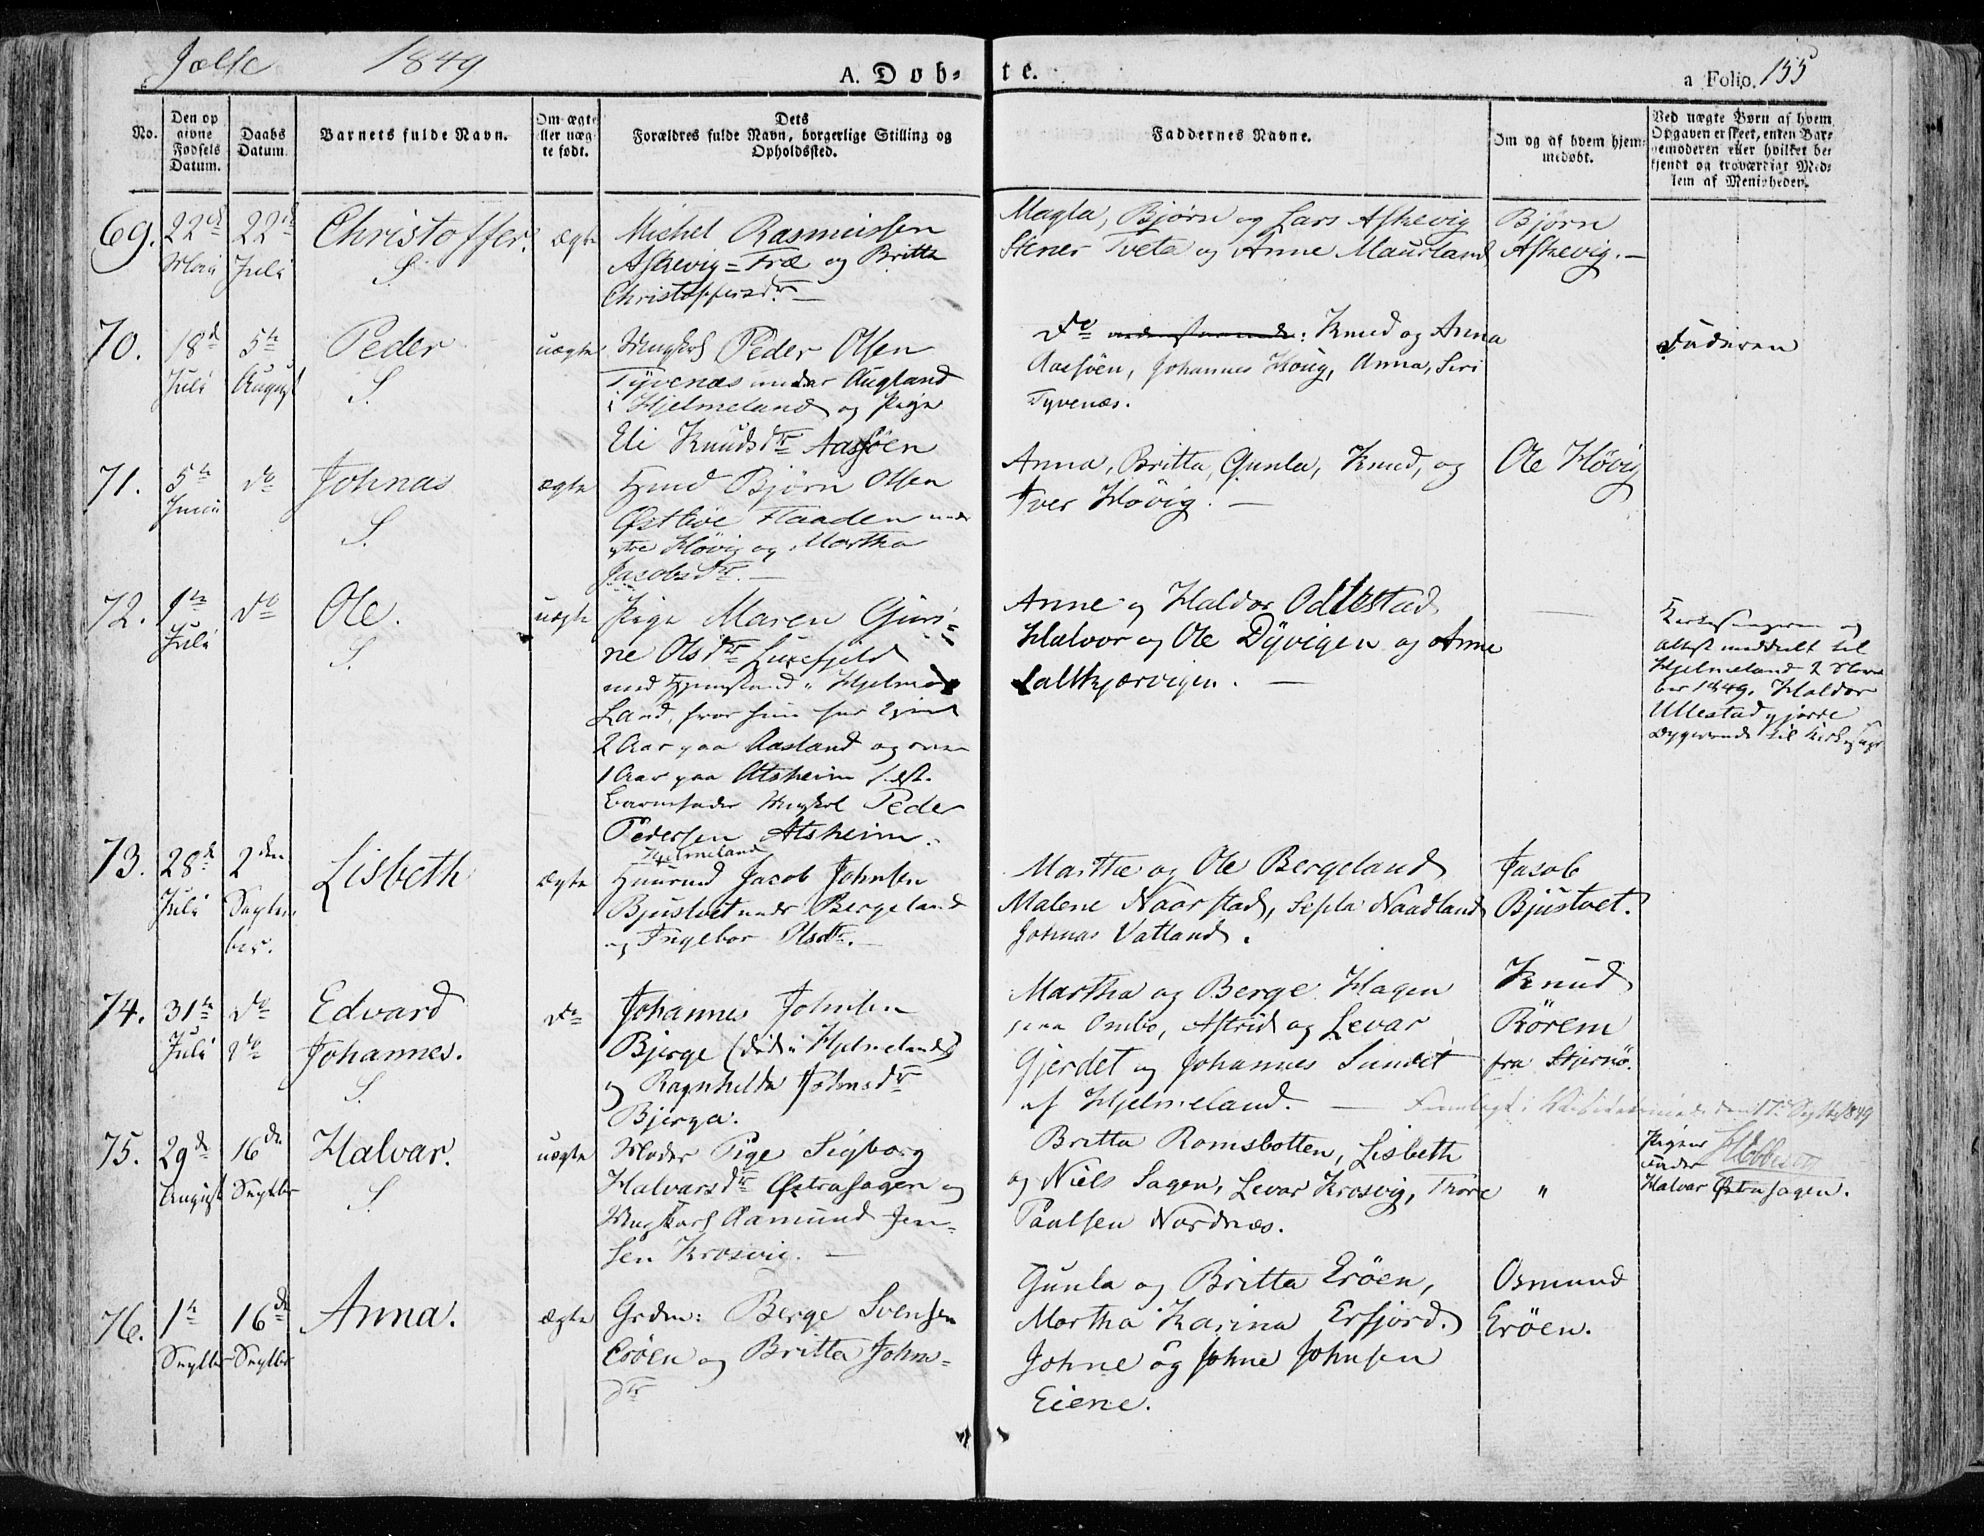 Jælse 1849 A. Døb- te. a Folio. 155
No.
Den opgivne Fødsels Datum.
Daabs Datum.
Barnets fulde Navn.
Om ægte eller uægte født.
Dets Forældres fulde Navn, borgerlige Stilling og Opholdssted.
Faddernes Navne.
Om og af hvem hjemmedøbt.
Ved uægte Børn af hvem Opgaven er skeet, enten Barnemoderen eller hvilket bekjendt og troværdigt Medlem af Menigheden.
69. 22de Mai 22de Juli Christoffer. S. ægte
Michel Rasmussen
Askevig = Træ og Britta
Christoffersdtr. —
Magla, Bjørn og Lars Askevig
Stener Tveta og Anne Maurland
Bjørn
Askevig. —
70. 18de Juli 5te August Peder S. uægte
Ungkarl Peder Olsen
Tyvenæs under Augland
i Hjelmeland og Pige
Eli Knudsdtr Aasøen
Do: Knud og Anna
Aasøen, Johannes Houg, Anna, Siri
Tyvenæs.
Faderen
71. 5te Juni do Johnas S. ægte
Hmd Bjørn Olsen
Østbøe Flaaden under
ytre Høvig og Martha
Jacobsdtr. —
Anna, Britta, Gunla, Knud, og
Iver Høvig. —
Ole Høvig
72. 1te Juli do Ole. S. uægte
Pige Maren Guri-
ne Olsdtr Luxefjeld
med Hjemstand i Hjelme
Land, hvor hun har tjent
2 Aar paa Aasland og
1 Aar paa Atsheim
Barnefader Ungkarl Peder
Pedersen Atsheim.
Anne og Haldor Odlestad
Halvor og Ole Dyvigen og Anne
Saltkjærvigen. —
Kirkesangeren og
Attest meddelt til
Hjelmeland 2 Novem
ber 1849. Haldor
Ullestad gjorde
73. 28de Juli 2den September. Lisbeth ægte
Hjelmeland
Huusmd Jacob Johnsen
Bjustvet under Bergeland
og Ingebor Olsdtr. —
Martha og Ole Bergeland
Malene Naarstad, Sissla Naadland
Johnas Vatland.
Jacob
Bjustvet.
74. 31te Juli do Edvard
Johannes. S. do
Johannes Johnsen
Bjerge (død i Hjelmeland)
og Ragnhilda Johnsdtr
Bjerga.
Martha og Berge Hagen
paa Ombo, Astrid og Levar
Gjerdet og Johannes Sundet
af Hjelmeland. —
Knud
Rørem
fra Stjernø.
75. 29de August 16de Septbr Halvar. S. uægte
Moder Pige Sigborg
Halvarsdtr Østrahagen og
Ungkarl Aamund Jen-
sen Krosvig. —
Britta Romsbotten, Lisbeth
og Niels Sagen, Levar Krosvig, Thore
Paulsen Nordnæs.
"
Pigens
Fader
Halvar Østrahagen.
76. 1te Septbr 16de Septbr Anna. ægte
Grdm: Berge Svensen
Erøen og Britta John-
dtr
Gunla og Britta Erøen,
Martha Karina Erfjord.
Johne og Johne Johnsen
Eiene.
Osmund
Erøen.